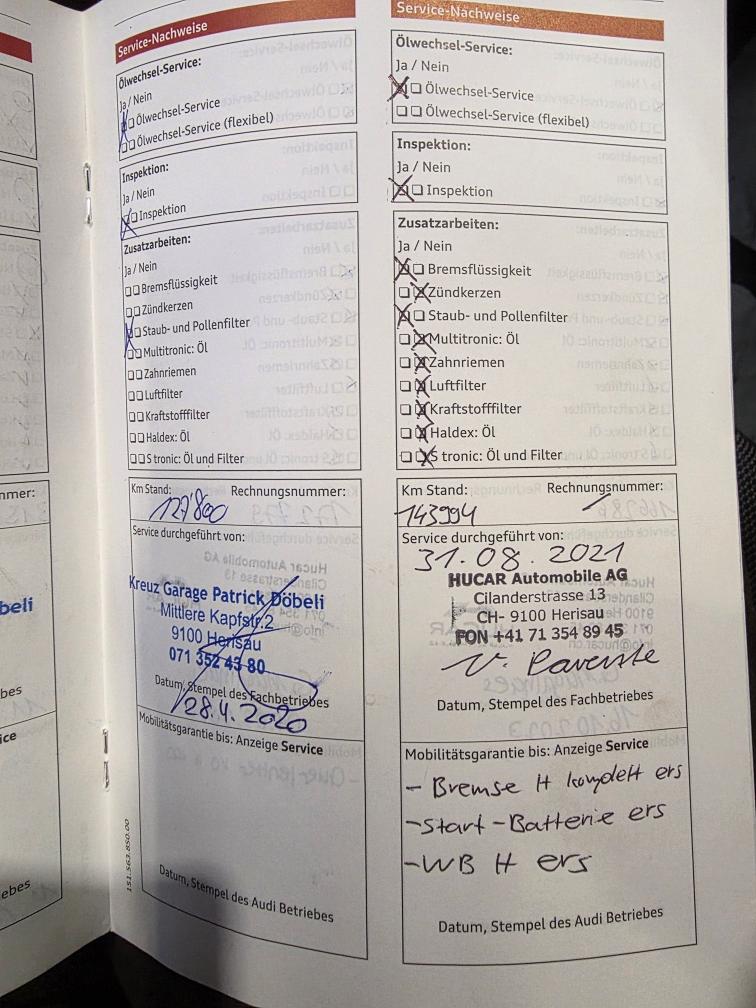 Service-Nachweise
Ölwechsel-Service:
Ja / Nein
Ölwechsel-Service
Ölwechsel-Service (flexibel)
Inspektion:
Ja / Nein
Inspektion
Zusatzarbeiten:
Ja / Nein
Bremsflüssigkeit
Zündkerzen
Staub- und Pollenfilter
Multitronic: Öl
Zahnriemen
Luftfilter
Kraftstofffilter
Haldex: Öl
S tronic: Öl und Filter
Km Stand: Rechnungsnummer:
127'800
Service durchgeführt von:
Kreuz Garage Patrick Döbeli
Mittlere Kapfstr.2
9100 Herisau
071 352 43 80
Datum, Stempel des Fachbetriebes
28.4.2020
Mobilitätsgarantie bis: Anzeige Service
Datum, Stempel des Audi Betriebes
151.563.850.00
Service-Nachweise
Ölwechsel-Service:
Ja / Nein
Ölwechsel-Service
Ölwechsel-Service (flexibel)
Inspektion:
Ja / Nein
Inspektion
Zusatzarbeiten:
Ja / Nein
Bremsflüssigkeit
Zündkerzen
Staub- und Pollenfilter
Multitronic: Öl
Zahnriemen
Luftfilter
Kraftstofffilter
Haldex: Öl
S tronic: Öl und Filter
Km Stand: Rechnungsnummer:
143994
Service durchgeführt von:
31.08.2021
HUCAR Automobile AG
Cilanderstrasse 13
CH- 9100 Herisau
FON +41 71 354 89 45
Datum, Stempel des Fachbetriebes
Mobilitätsgarantie bis: Anzeige Service
- Bremse H komplett ers
- Start-Batterie ers
- WB H ers
Datum, Stempel des Audi Betriebes